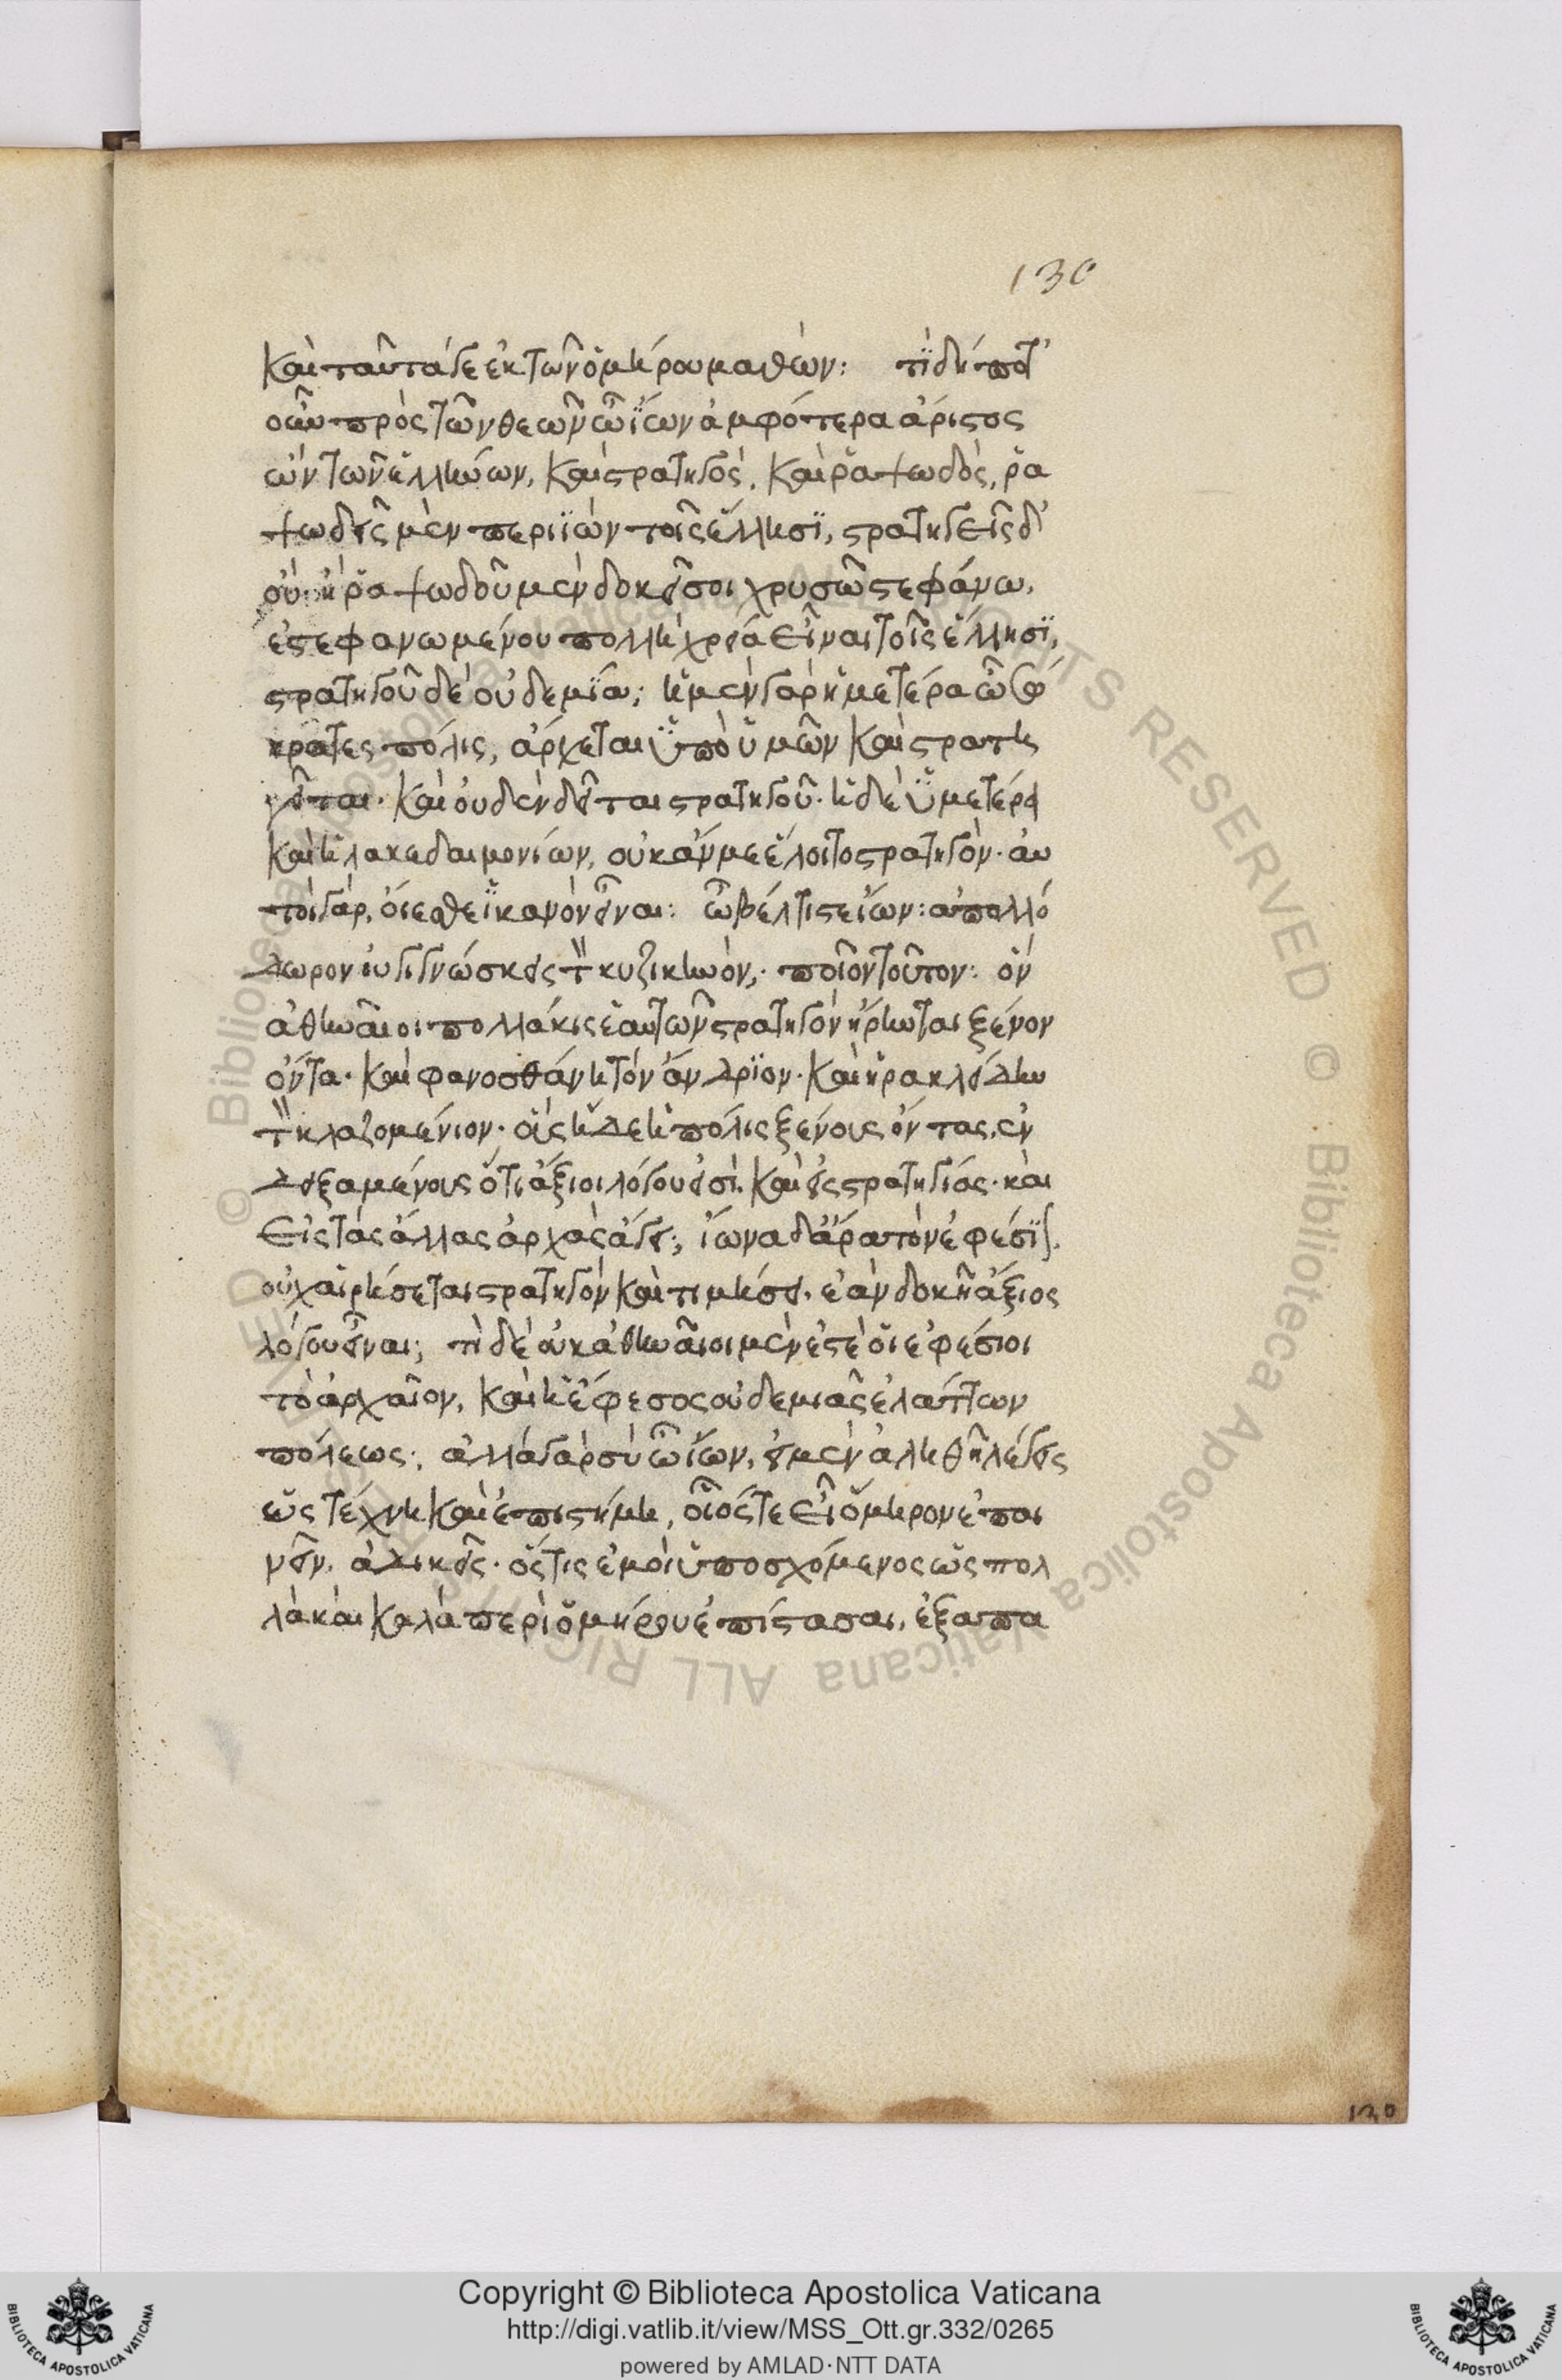 130
καὶ ταῦτά γε ἐκ τῶν ὁμήρου μαθών: τί δή ποτ'
οὖν πρὸς τῶν θεῶν ὦ ἴων ἀμφότερα ἄριστος
ὢν τῶν ἑλλήνων, καὶ στρατηγὸς, καὶ ῥαψωδὸς, ῥα
ψωδεῖς μὲν περιϊὼν τοῖς ἕλλησϊ, στρατηγεῖς δ'
οὔ· ἢ ῥαψωδοῦ μὲν δοκεῖ σοι χρυσῶ στεφάνω,
ἐστεφανωμένου πολλὴ χρεία εἶναι τοῖς ἕλλησϊ,
στρατηγοῦ δὲ οὐδεμΐα; ἡ μὲν γὰρ ἡμετέρα ὦ σώ
κρατες πόλις, ἄρχεται ὑπὸ ὑμῶν καὶ στρατη
γεῖται· καὶ οὐδὲν δεῖται στρατηγοῦ· ἡ δὲ ὑμετέρα
καὶ ἡ λακεδαιμονίων, οὐκ ἄν με ἕλοιτο στρατηγόν· αὐ
τοὶ γὰρ, οἴεσθε ἱκανὸν εἶναι: ὦ βέλτιστε ἴων: ἀπολλό
δωρον οὐ γιγνώσκεις τὸν κυζικηνόν; ποῖον τοῦτον: ὃν
ἀθηναῖοι πολλάκις ἑαυτῶν στρατηγὸν ἥρηνται ξένον
ὄντα· καὶ φανοσθάνη τὸν ἄνδριον· καὶ ἡρακλείδην
τὸν κλαζομένιον· οἷς ἥδε ἡ πόλις ξένους ὄντας, ἐν
δειξαμένους ὅτι ἄξιοι λόγου εἰσὶ, καὶ εἰς στρατηγίας· καὶ
εἰς τὰς ἄλλας ἀρχὰς ἄγει; ἴωνα δ' ἄρα τὸν ἐφέσϊον
οὐχ αἱρήσεται στρατηγὸν καὶ τιμήσει, ἐὰν δοκῆ ἄξιος
λόγου εἶναι; τί δέ οὐκ ἀθηναῖοι μὲν ἐστὲ οἱ ἐφέσιοι
τὸ ἀρχαῖον, καὶ ἡ ἔφεσος οὐδεμιᾶς ἐλάττων
πόλεως; ἀλλὰ γὰρ σὺ ὦ ἴων, εἰ μὲν ἀληθῆ λέγεις
ὡς τέχνη καὶ ἐπιστήμη, οἷός τε εἶ ὅμηρον ἐπαι
νεῖν, ἀδικεῖς· ὅστις ἐμοὶ ὑποσχόμενος ὡς πολ
λὰ καὶ καλὰ περὶ ὁμήρου ἐπίστασαι, ἐξαπα
130
Copyright © Biblioteca Apostolica Vaticana
http://digi.vatlib.it/view/MSS_Ott.gr.332/0265
powered by AMLAD·NTT DATA
BIBLIOTECA APOSTOLICA VATICANA
BIBLIOTECA APOSTOLICA VATICANA